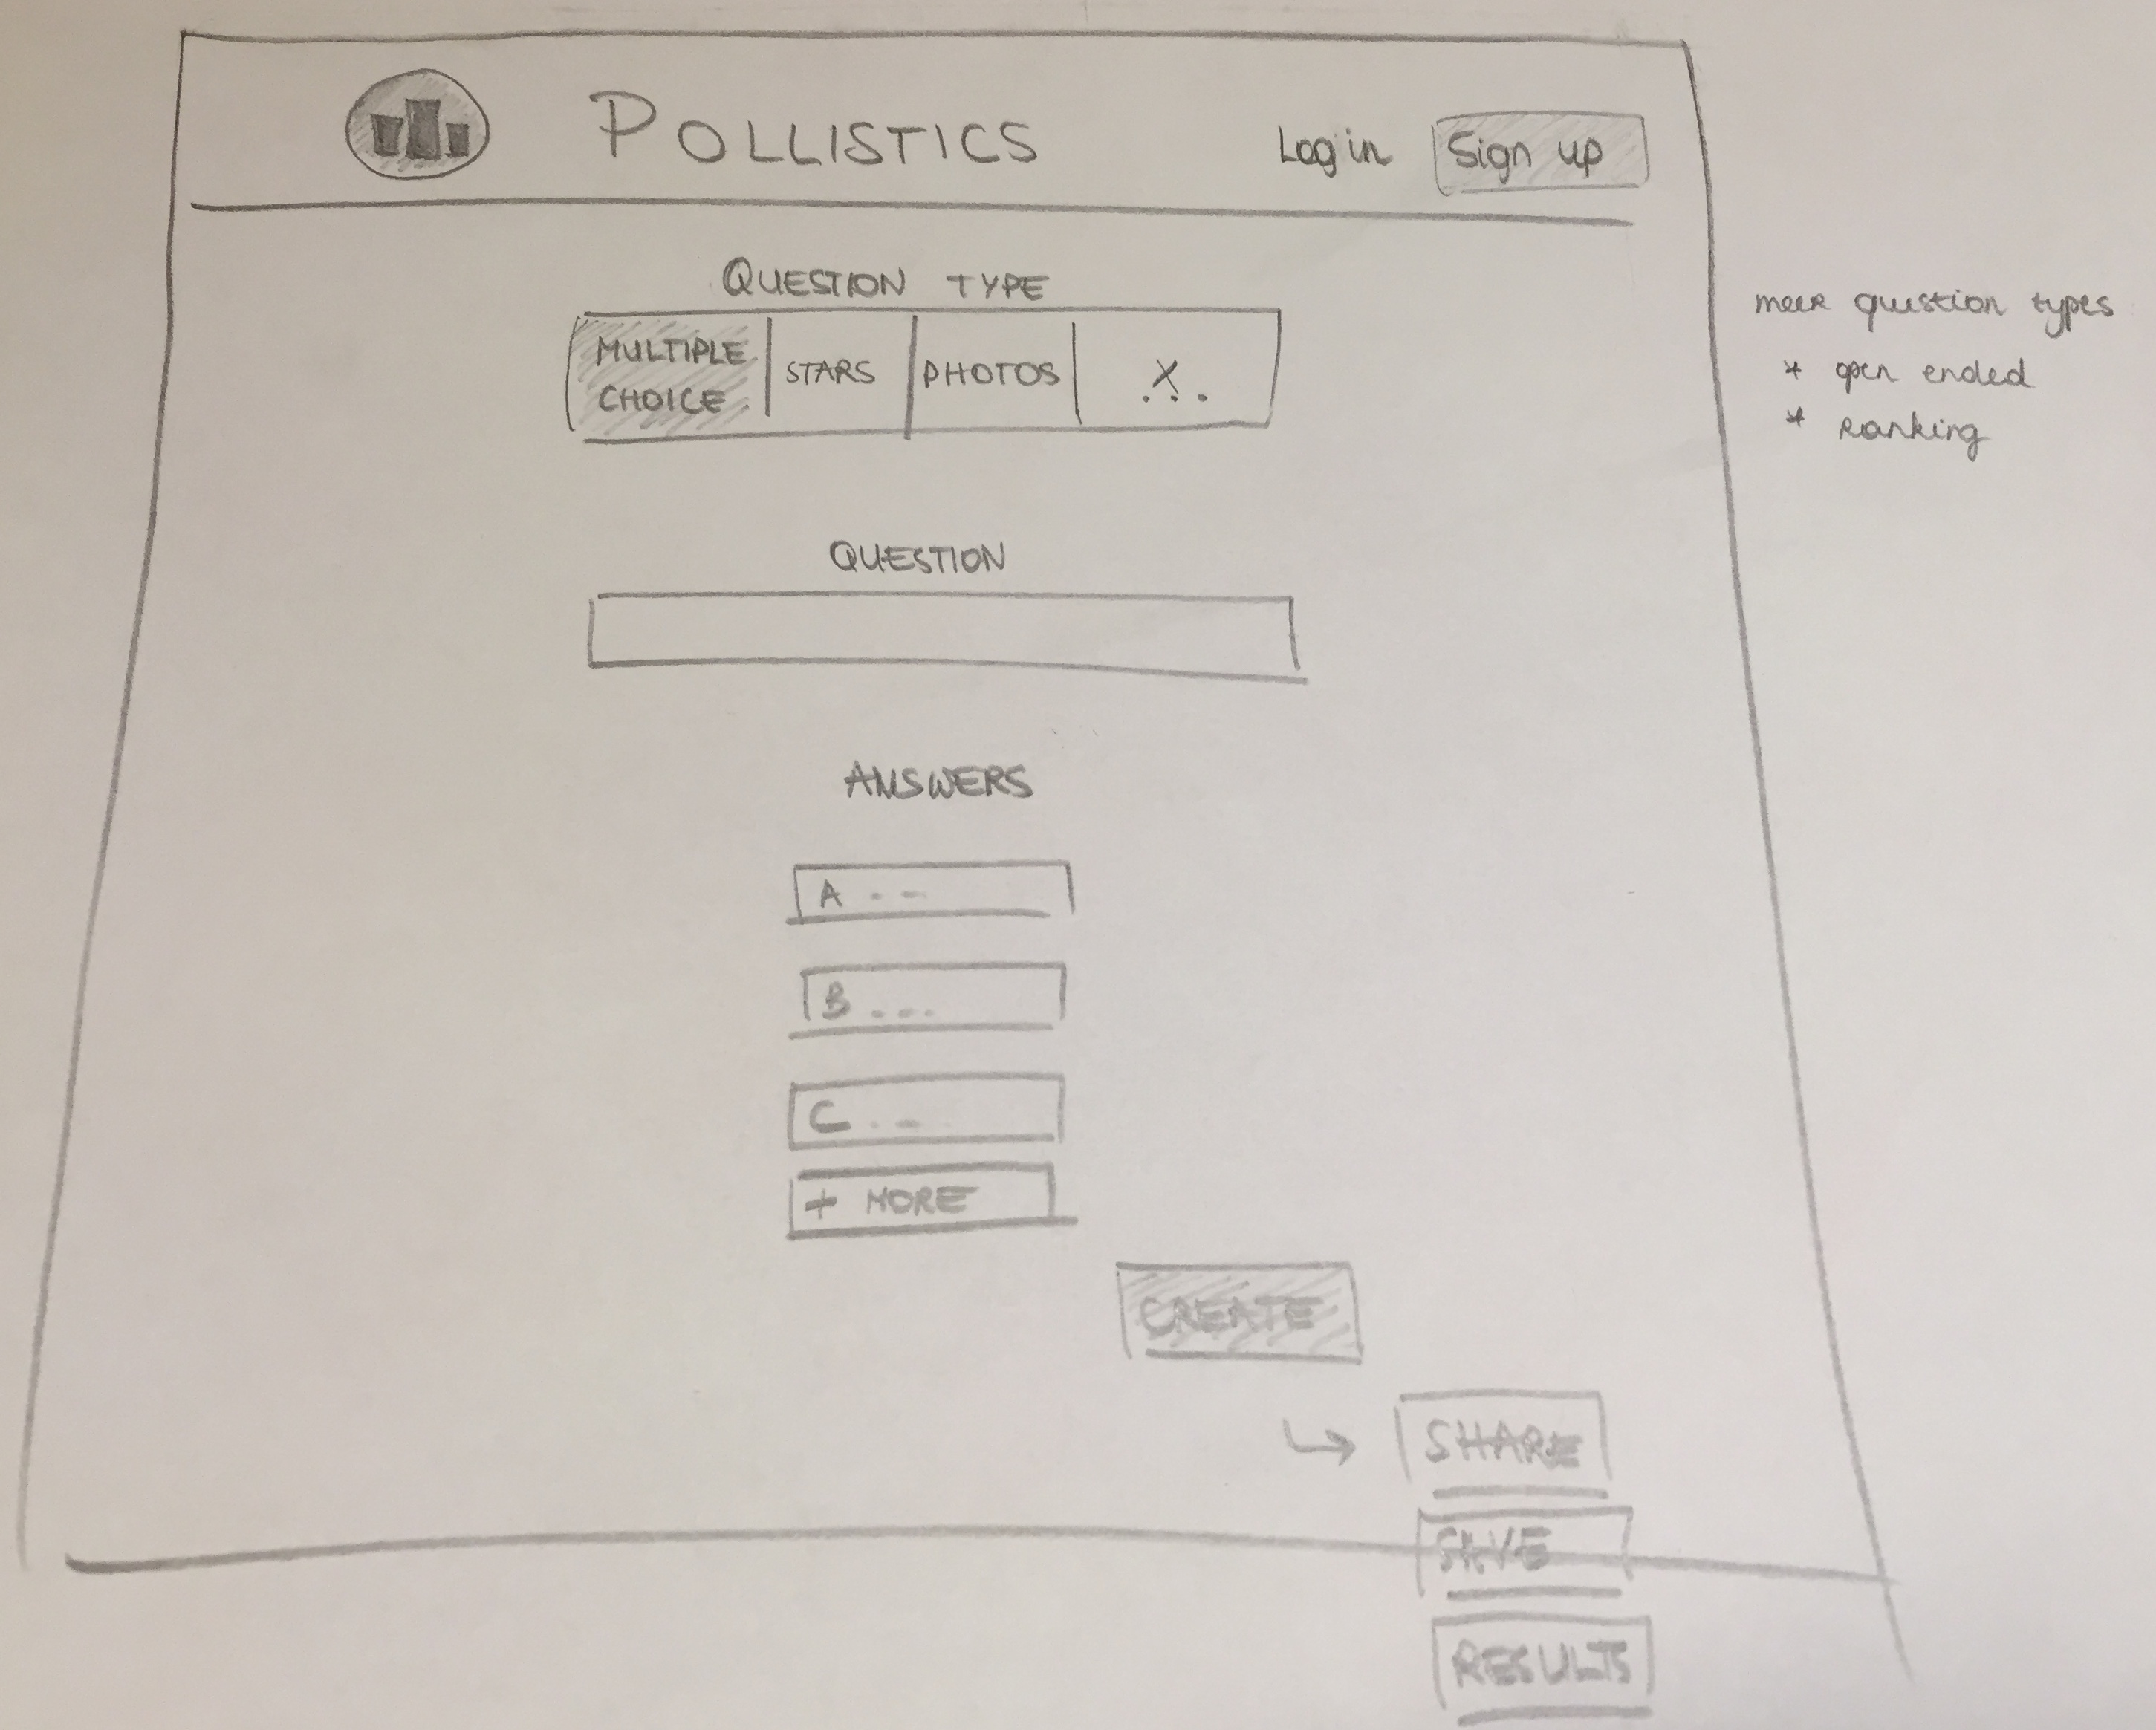 POLLISTICS
Log in
Sign up
QUESTION TYPE
MULTIPLE
CHOICE
STARS
PHOTOS
X...
meer question types
* open ended
* Ranking
QUESTION
ANSWERS
A ...
B ...
C ...
+ MORE
CREATE
↳ SHARE
SAVE
RESULTS